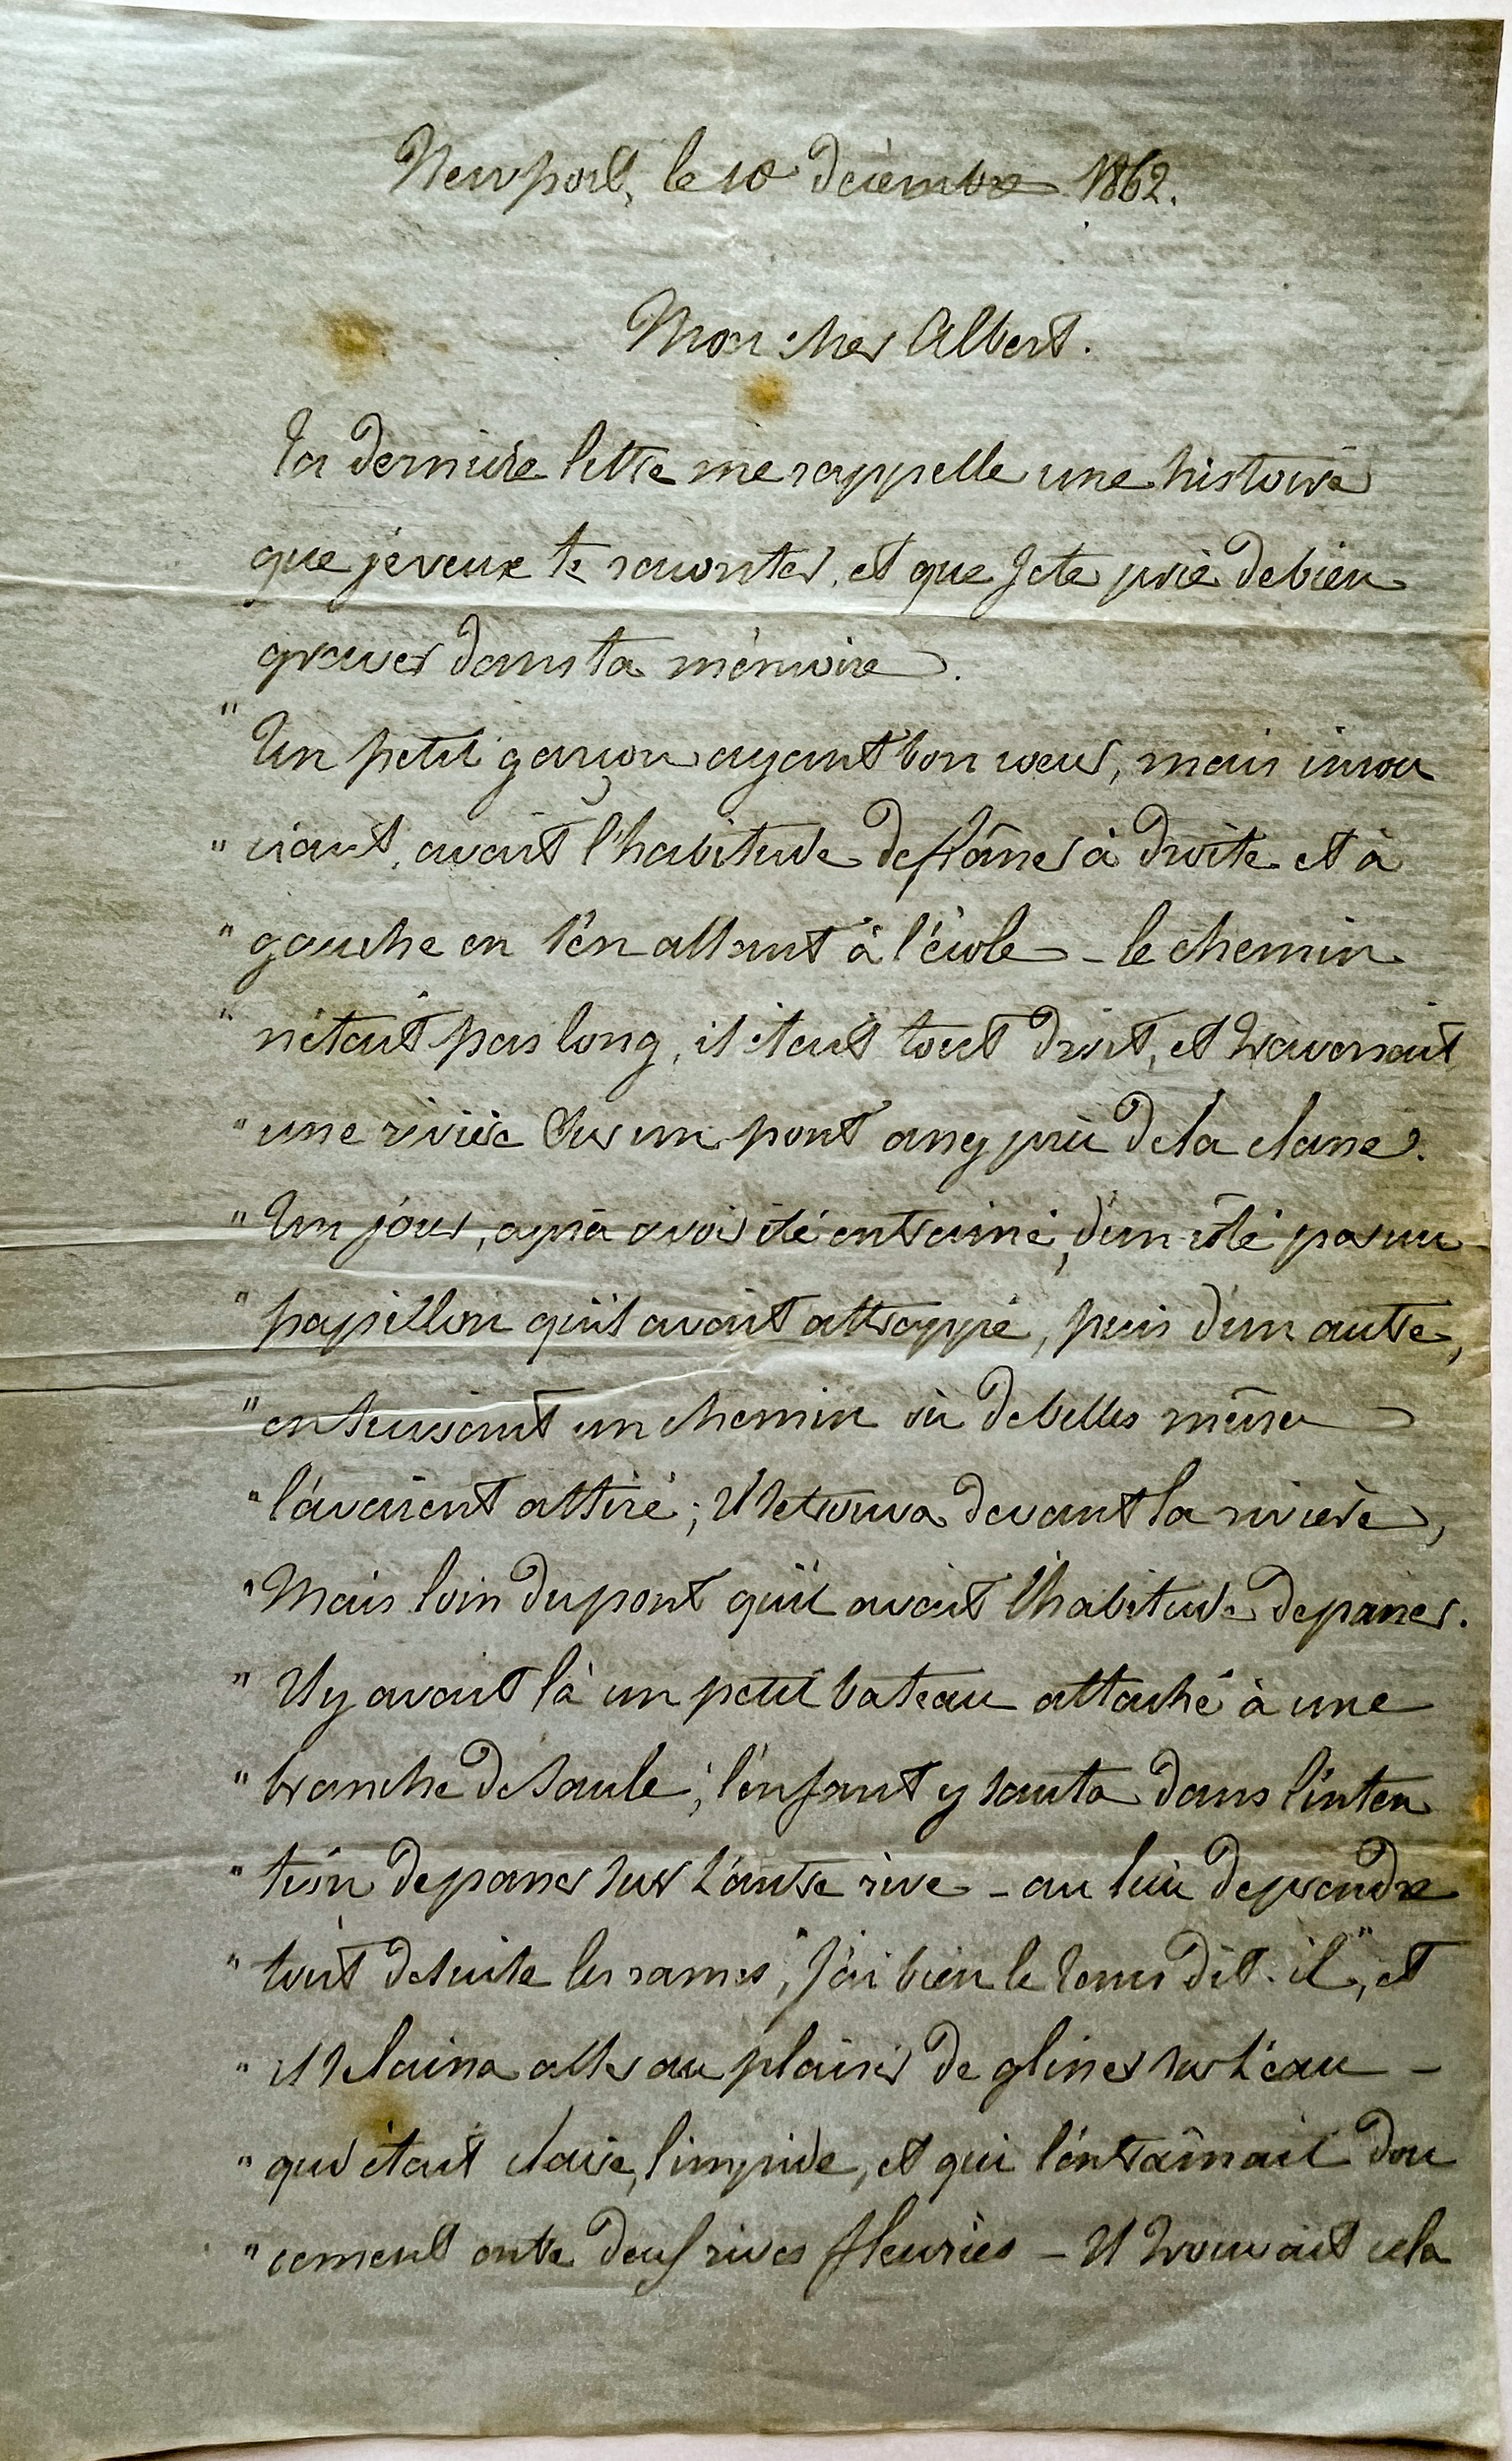 Newport, le 10 décembre 1862.
Mon cher Albert.
Ta dernière lettre me rappelle une histoire
que je veux te raconter, et que je te prie de bien
graver dans ta mémoire.
" Un petit garçon ayant bon cœur, mais insou
" ciant, avait l'habitude de flâner à droite et à
" gauche en s'en allant à l'école – le chemin
" n'était pas long, il était tout droit, et traversait
" une rivière sur un pont assez près de la classe.
" Un jour, après avoir été entrainé, d'un côté par un
" papillon qu'il avait attrappé, puis d'un autre,
" en suivant un chemin où de belles mûres
" l'avaient attiré ; il se trouva devant la rivière,
" Mais loin du pont qu'il avait l'habitude de passer.
" Il y avait là un petit bateau attaché à une
" branche de saule ; l'enfant y sauta dans l'inten
" tion de passer sur l'autre rive – au lieu de prendre
" tout de suite les rames, "j'ai bien le tems dit-il", et
" il se laissa aller au plaisir de glisser sur l'eau –
" qui était claire, limpide, et qui l'entraînait dou
" cement entre deux rives fleuries – Il trouvait cela